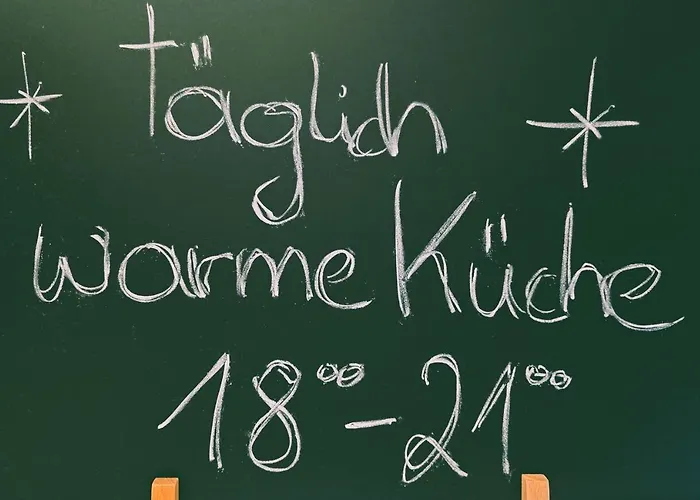 täglich
warme Küche
18⁰⁰ - 21⁰⁰